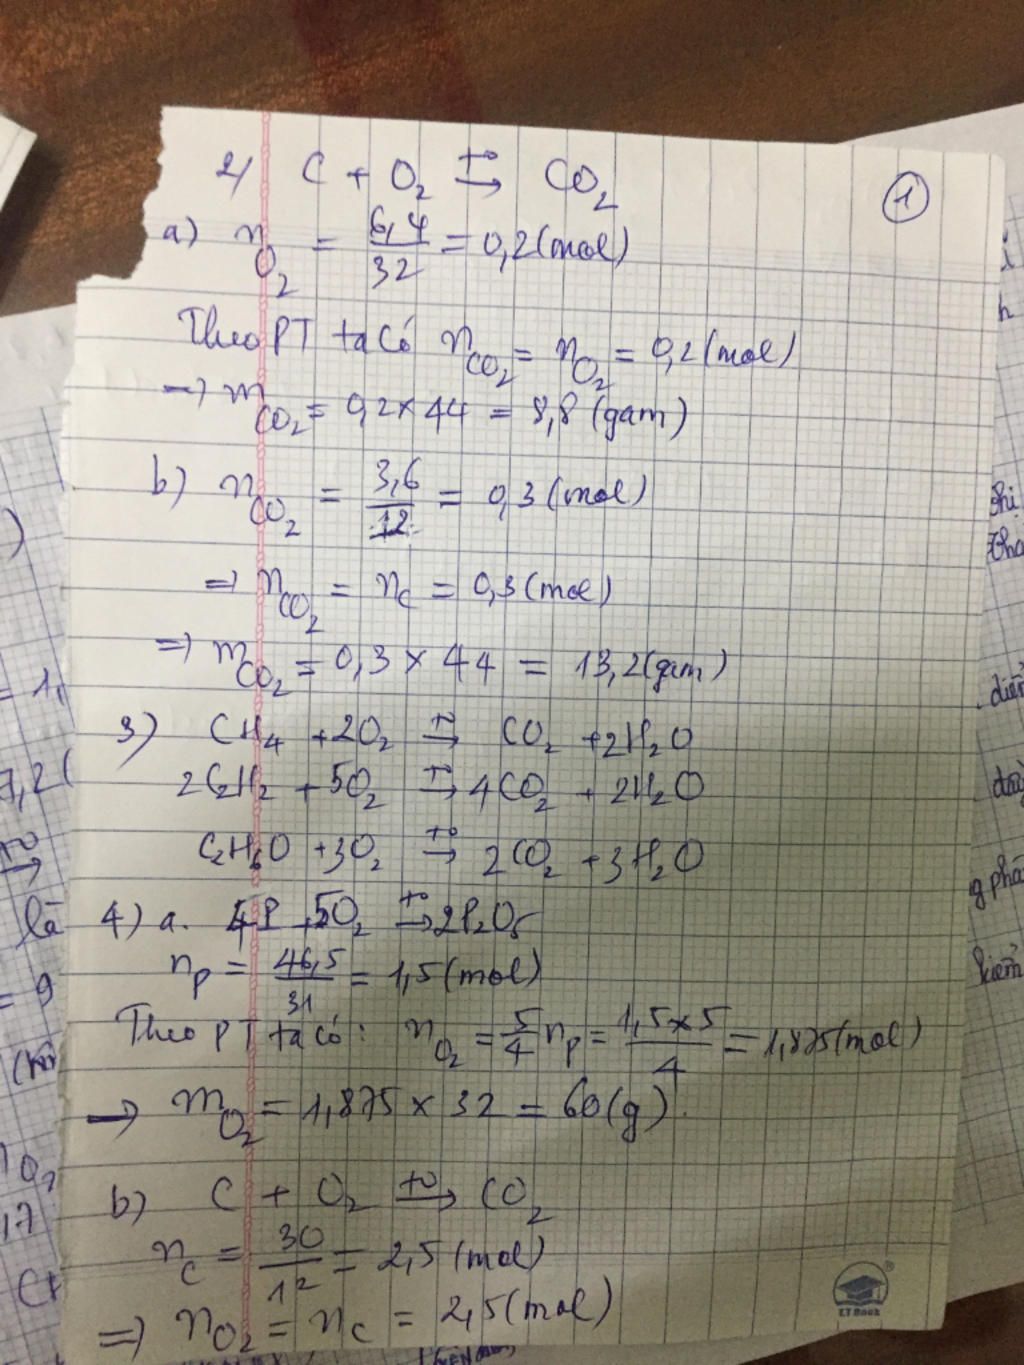 2/ C + O₂ t⁰→ CO₂
①
a) n_O₂ = 6,4/32 = 0,2 (mol)
Theo PT ta có n_CO₂ = n_O₂ = 0,2 (mol)
→ m_CO₂ = 0,2 × 44 = 8,8 (gam)
b) n_CO₂ = 3,6/12 = 0,3 (mol)
⇒ n_CO₂ = n_C = 0,3 (mol)
⇒ m_CO₂ = 0,3 × 44 = 13,2 (gam)
3) CH₄ + 2O₂ t⁰→ CO₂ + 2H₂O
2C₂H₂ + 5O₂ t⁰→ 4CO₂ + 2H₂O
C₂H₆O + 3O₂ t⁰→ 2CO₂ + 3H₂O
4) a. 4P + 5O₂ t⁰→ 2P₂O₅
n_P = 46,5/31 = 1,5 (mol)
Theo PT ta có: n_O₂ = 5/4 n_P = 1,5 × 5/4 = 1,875 (mol)
→ m_O₂ = 1,875 × 32 = 60 (g)
b) C + O₂ t⁰→ CO₂
n_C = 30/12 = 2,5 (mol)
⇒ n_O₂ = n_C = 2,5 (mol)
KT Book ®
= 1,
7,2 (
t⁰→
là
= 9
O₂
,17